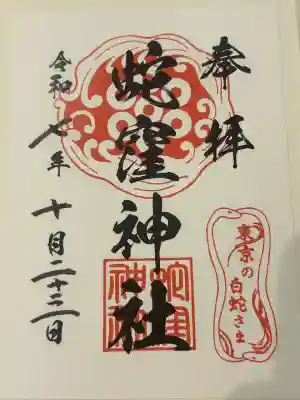 奉拝
蛇窪神社
令和七年
十月二十二日
東京の
白蛇さま
蛇窪
神社